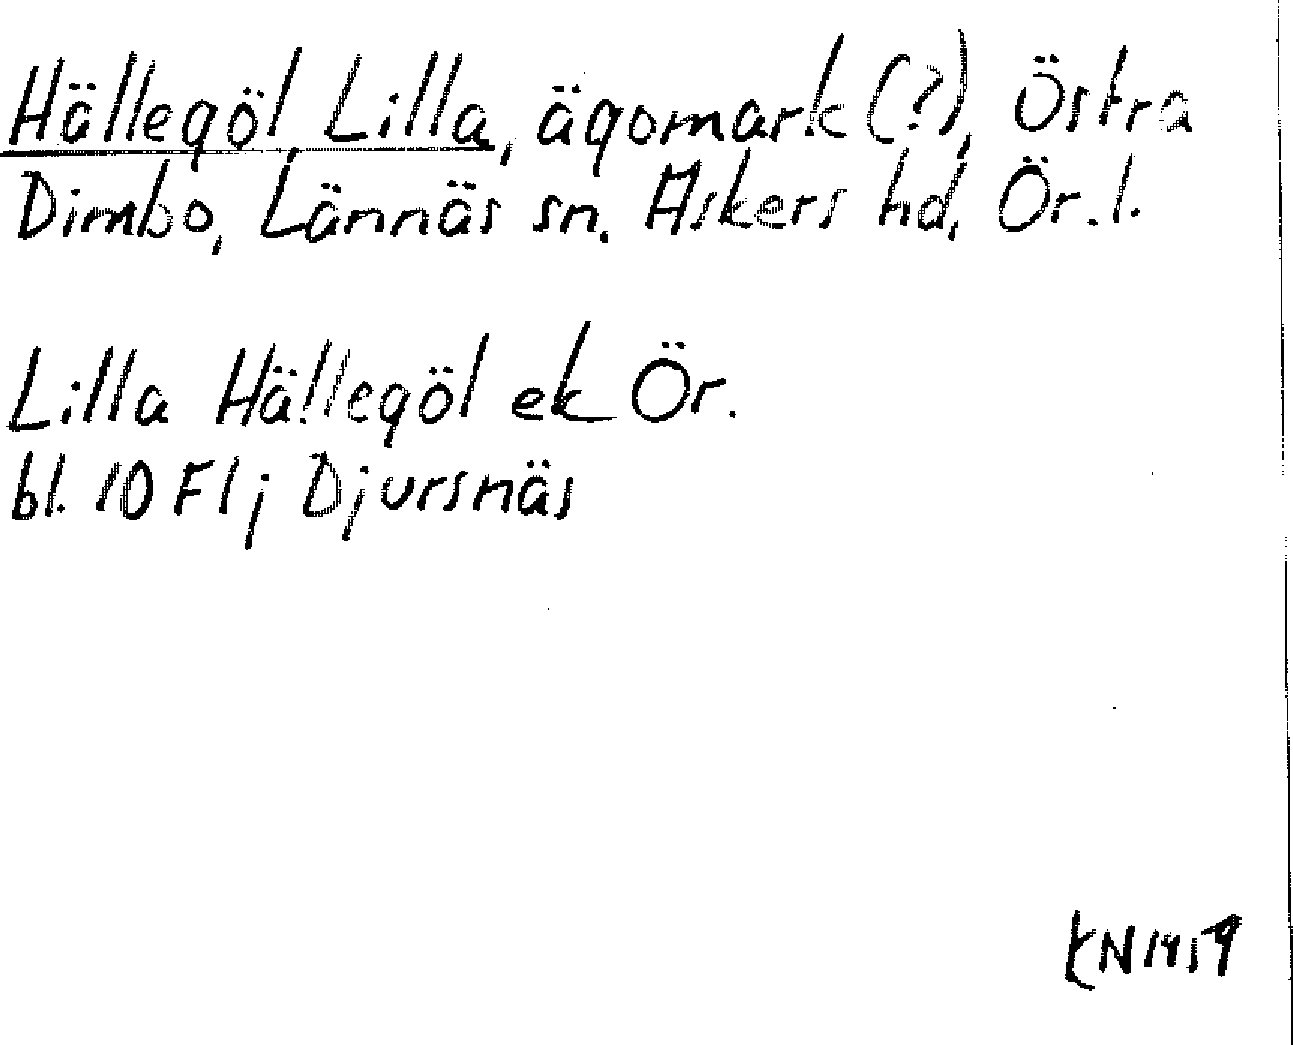 Hällegöl, Lilla, ägomark (?), Östra
Dimbo, Lännäs sn. Askers hd, Ör. l.
Lilla Hällegöl ek Ör.
bl. 10 F1j Djursnäs